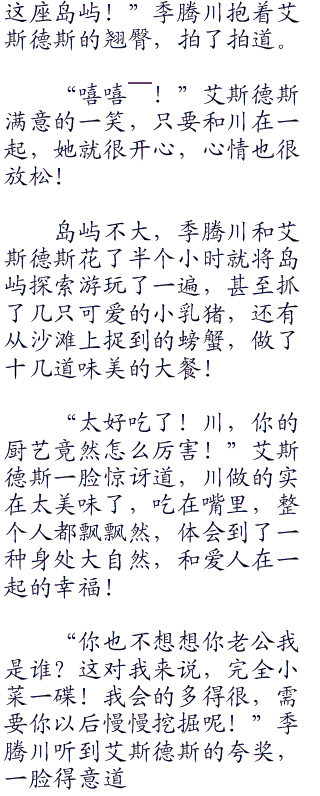 这座岛屿！”季腾川抱着艾
斯德斯的翘臀，拍了拍道。
“嘻嘻￣！”艾斯德斯
满意的一笑，只要和川在一
起，她就很开心，心情也很
放松！
岛屿不大，季腾川和艾
斯德斯花了半个小时就将岛
屿探索游玩了一遍，甚至抓
了几只可爱的小乳猪，还有
从沙滩上捉到的螃蟹，做了
十几道味美的大餐！
“太好吃了！川，你的
厨艺竟然怎么厉害！”艾斯
德斯一脸惊讶道，川做的实
在太美味了，吃在嘴里，整
个人都飘飘然，体会到了一
种身处大自然，和爱人在一
起的幸福！
“你也不想想你老公我
是谁？这对我来说，完全小
菜一碟！我会的多得很，需
要你以后慢慢挖掘呢！”季
腾川听到艾斯德斯的夸奖，
一脸得意道